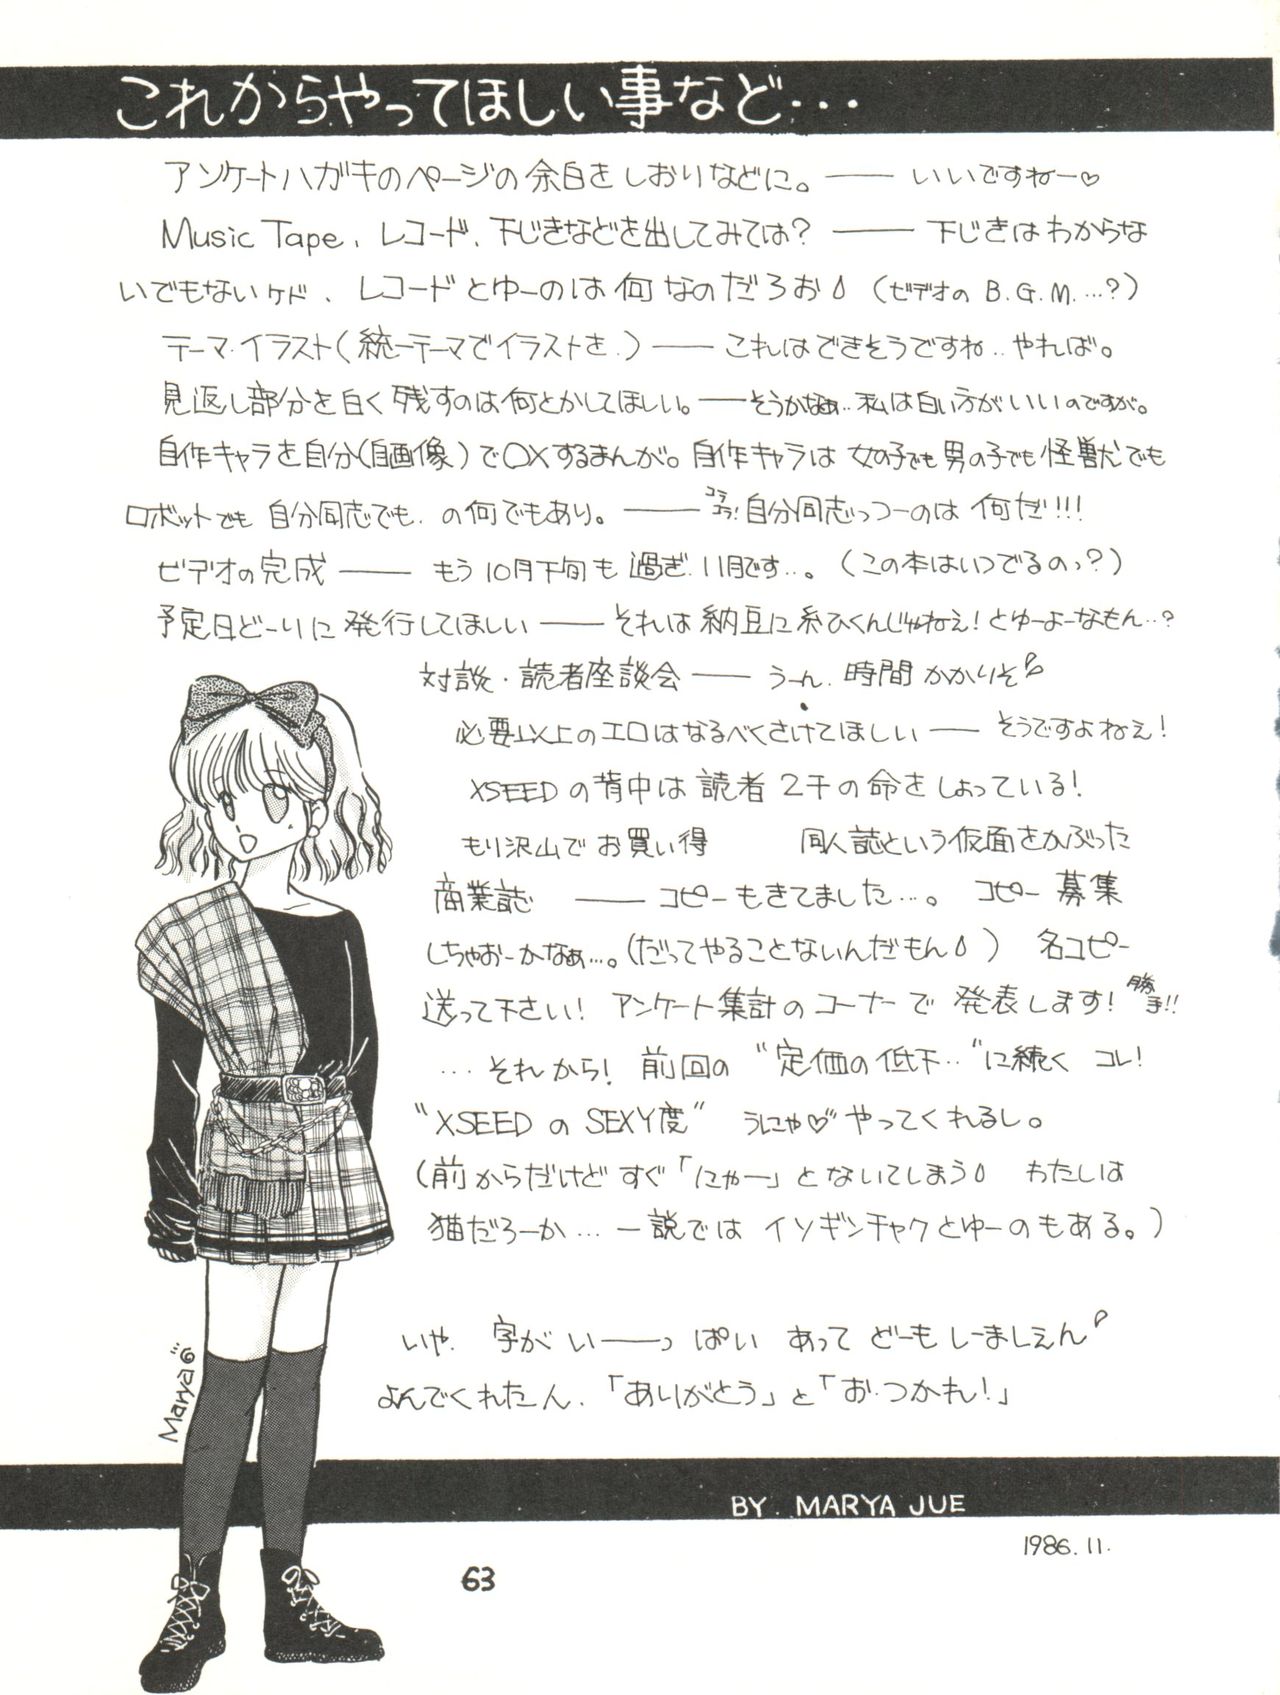 これからやってほしい事など・・・
アンケートハガキのページの余白をしおりなどに。―― いいですねー♡
Music Tape、レコード、下じきなどを出してみては？ ―― 下じきはわからな
いでもないケド、レコードとゆーのは何なのだろお （ビデオの B.G.M.…？）
テーマ・イラスト（統一テーマでイラストを.）―― これはできそうですね..やれば。
見返し部分を白く残すのは何とかしてほしい。――そうかなぁ..私は白い方がいいのですが。
自作キャラを自分（自画像）で〇×するまんが。自作キャラは女の子でも男の子でも怪獣でも
ロボットでも自分同志でも.の何でもあり。―― コラコラ!自分同志っつーのは何だ!!!
ビデオの完成 ―― もう10月下旬も過ぎ.11月です…。（この本はいつでるのっ？）
予定日どーりに発行してほしい ―― それは納豆に糸ひくんじゃねえ!とゆーよーなもん…?
対談・読者座談会 ―― うーん.時間かかりそ
必要以上のエロはなるべくさけてほしい ―― そうですよねぇ!
XSEEDの背中は読者2千の命をしょっている!
もり沢山でお買い得　同人誌という仮面をかぶった
商業誌 ―― コピーもきてました…。コピー募集
しちゃおーかなぁ…。（だってやることないんだもん）名コピー
送って下さい! アンケート集計のコーナーで発表します! 勝手!!
…それから! 前回の“定価の低下…”に続くコレ!
“XSEEDのSEXY度” うにゃ♡やってくれるし。
（前からだけどすぐ「にゃー」とないてしまう わたしは
猫だろーか…一説ではイソギンチャクとゆーのもある。）
いや.字がい――っぱいあってどーもしーましぇん
よんでくれたん.「ありがとう」と「お.つかれ!」
Marya
BY. MARYA JUE
1986.11.
63